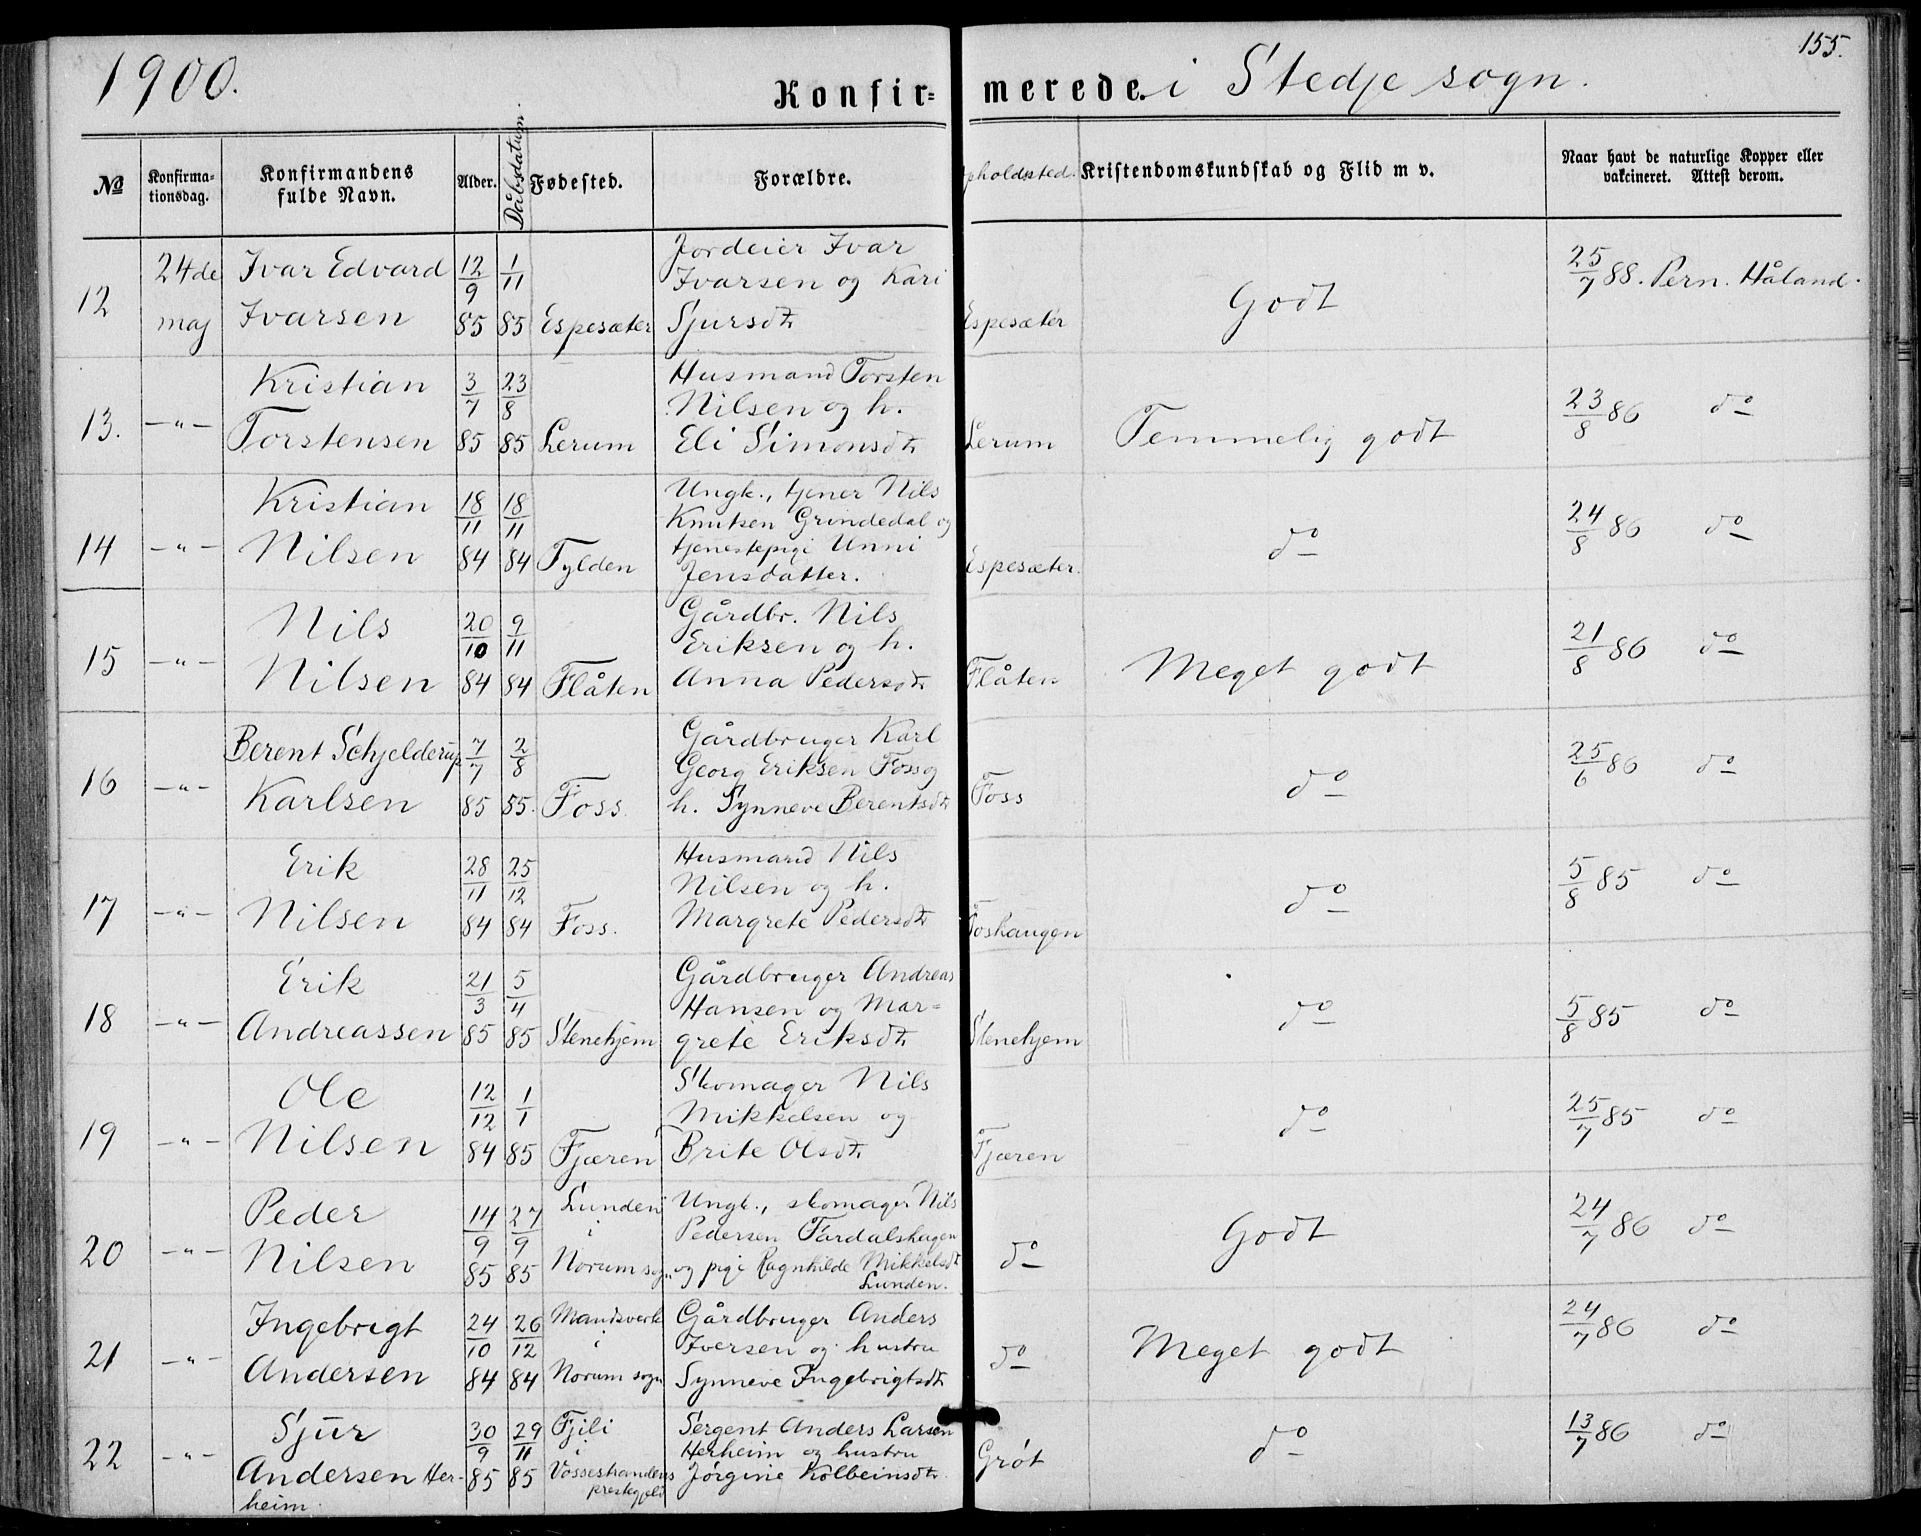 1900.
155.
Konfir=merede i Stedje sogn.
№ Konfirma-tionsdag. Konfirmandens fulde Navn. Alder. Dåbsdatum. Fødested. Forældre. pholdsted. Kristendomskundskab og Flid m v. Naar havt de naturlige Kopper eller vakcineret. Attest derom.
12 24de maj Ivar Edvard Ivarsen 12/9 85 1/11 85 Espesæter Jordeier Ivar Ivarsen og Kari Sjursdt. Espesæter Godt 25/7 88. Pern. Håland.
13. —"— Kristian Torstensen 3/7 85 23/8 85 Lerum Husmand Torsten Nilsen og h. Eli Simonsdt. Lerum Temmelig godt 23/8 86 do
14 —"— Kristian Nilsen 18/11 84 18/11 84 Tylden Ungk., tjener Nils Knutsen Grindedal og tjenestepige Unni Jensdatter. Espesæter. do 24/8 86 do
15 —"— Nils Nilsen 20/10 84 9/11 84 Flåten Gårdbr. Nils Eriksen og h. Anna Pedersdt. Flåten Meget godt 21/8 86 do
16 —"— Berent Schjelderup Karlsen 7/7 85 2/8 85. Foss Gårdbruger Karl Georg Eriksen Foss og h. Synneve Berentsdt. Foss do 25/6 86 do
17 —"— Erik Nilsen 28/11 84 25/12 84 Foss. Husmand Nils Nilsen og h. Margrete Pedersdt. Foshaugen do 5/8 85 do
18 —"— Erik Andreassen 21/3 85 5/4 85 Stenehjem Gårdbruger Andreas Hansen og Mar=grete Eriksdt. Stenehjem do 5/8 85 do
19 —"— Ole Nilsen 12/12 84 1/1 85 Fjæren Skomager Nils Mikkelsen og Brite Olsdt. Fjæren do 25/7 85 do
20 —"— Peder Nilsen 14/9 85 27/9 85 Lunden i Norum sogn Ungk., skomager Nils Pedersen Fardalshagen og pige Ragnhilde Mikkelsdt. Lunden. do Godt 24/7 86 do
21 —"— Ingebrigt Andersen 24/10 84 26/12 84 Mandsverk i Norum sogn Gårdbruger Anders Iversen og hustru Synneve Ingebrigtsdt. do Meget godt 24/7 86 do
22 —"— Sjur Andersen Her-heim. 30/9 85 29/11 85 Fjeli i Vossestrandens prestegjeld Sergent Anders Larsen Herheim og hustru Jørgine Kolbeinsdt. Grøt do 13/7 86 do